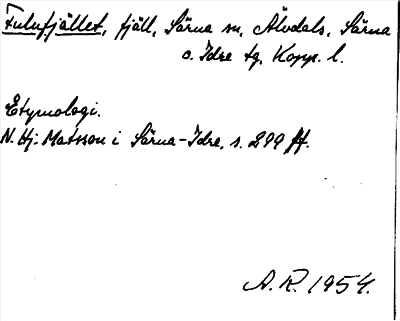 Fulufjället, fjäll, Särna sn, Älvdals, Särna
o. Idre tg, Kopp. l.
Etymologi.
N. Hj. Matsson i Särna-Idre, s. 299 ff.
A. R. 1954.